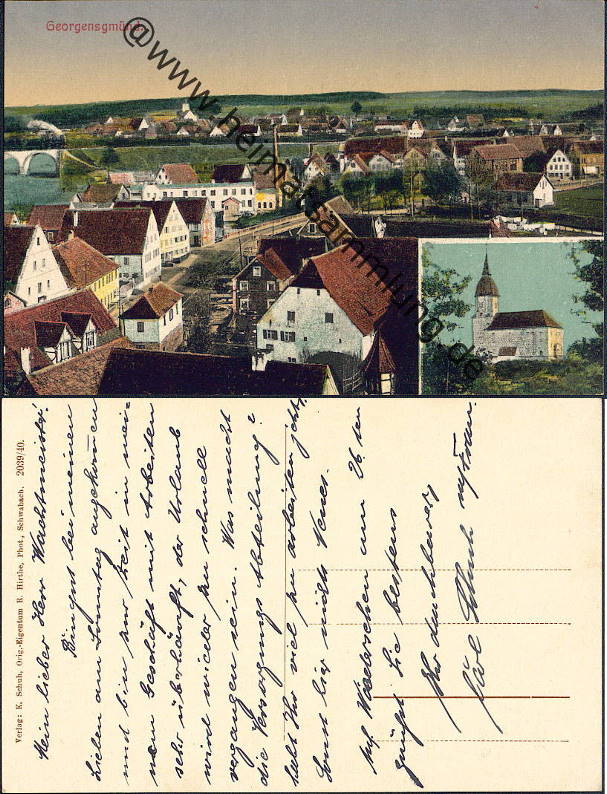 Georgensgmünd.
@www.heimatsammlung.de
Verlag: E. Schuh, Orig.-Eigentum R. Hirthe, Phot., Schwabach. 2039/40.
Mein lieber Herr Wachtmeister!
Jüngst bei meinen
Lieben am Sonntag angekommen
und bin zur Zeit in mei-
nem Geschäft mit Arbeiten
sehr überhäuft, der Urlaub
wird wieder zu schnell
vergangen sein. Was macht
die Versorgungs Abteilung?
habt Ihr viel zu arbeiten jetzt.
Sonst hier nichts Neues.
Auf Wiedersehen am 26. ten
grüßt Sie bestens
Ihr dankbarer